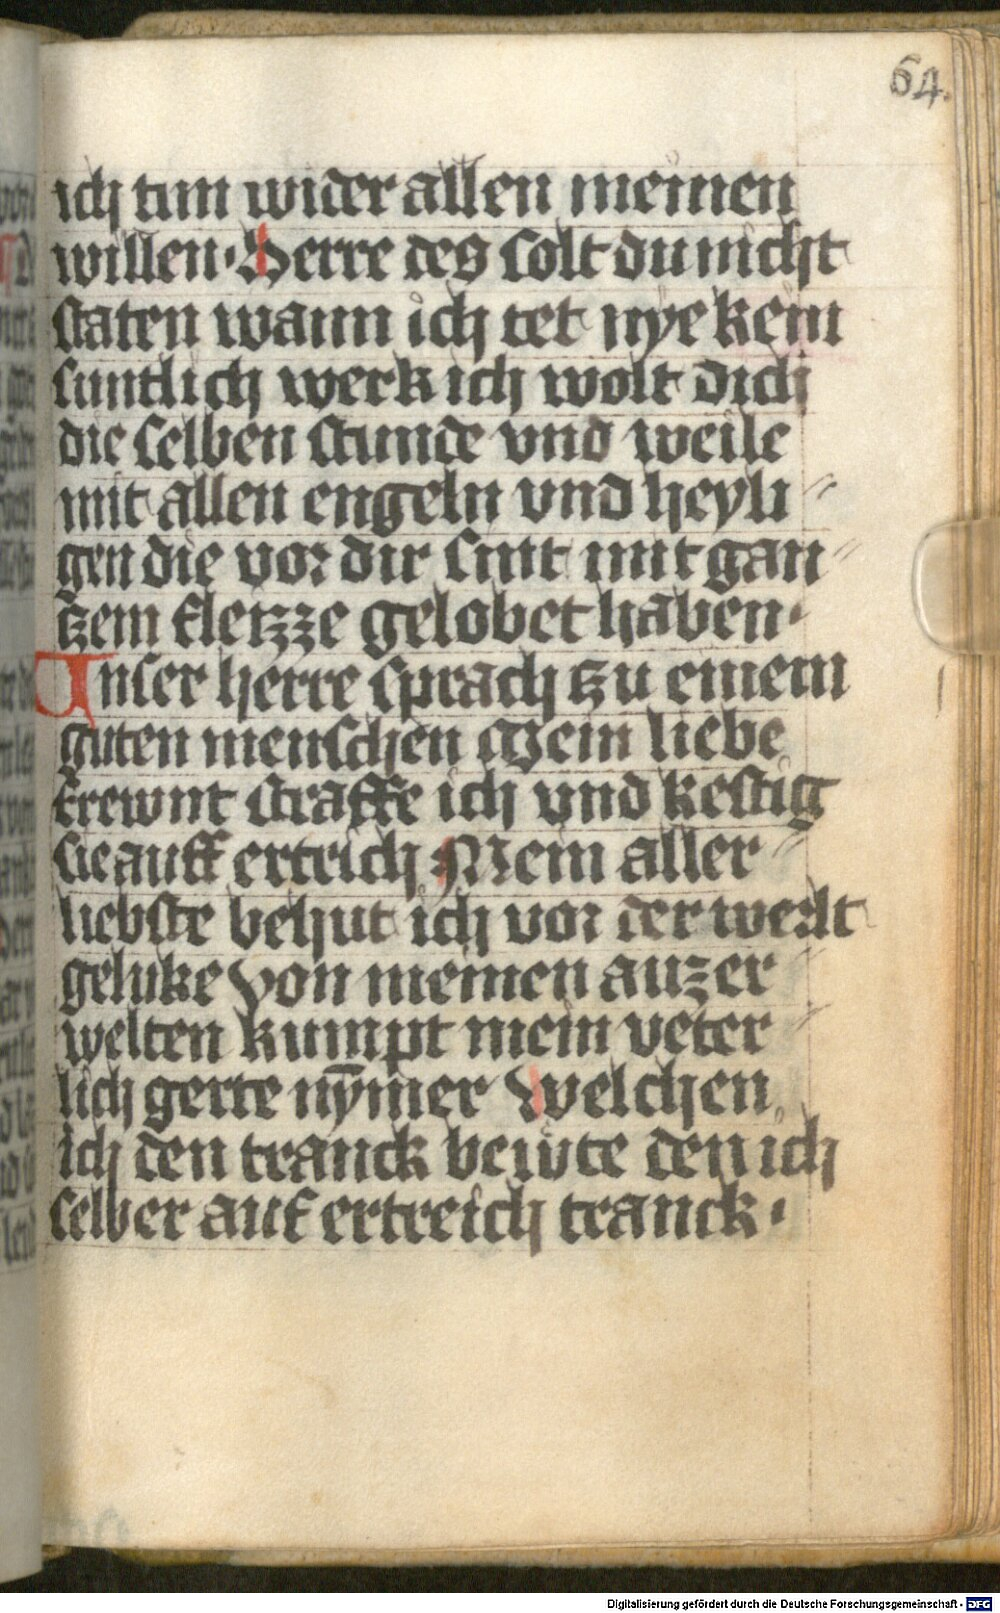 64.
ich tun wider allen meinen
willen · Herre des solt du nicht
staten wann ich tet nye kein
suntlich werk ich wolt dich
die selben stunde vnd weile
mit allen engeln vnd heyli
gen die vor dir sint mit gan
tzem fleizze gelobet haben ·
Unser herre sprach zu einem
guten menschen Mein liebe
frewnt straffe ich vnd kestig
sie auff ertrich Mein aller
liebste behut ich vor der werlt
geluke Von meinen auzer
welten kumpt mein veter
lich gerte nȳmer Welchen
ich den tranck beivte den ich
selber auf ertreich tranck ·
Digitalisierung gefördert durch die Deutsche Forschungsgemeinschaft - DFG